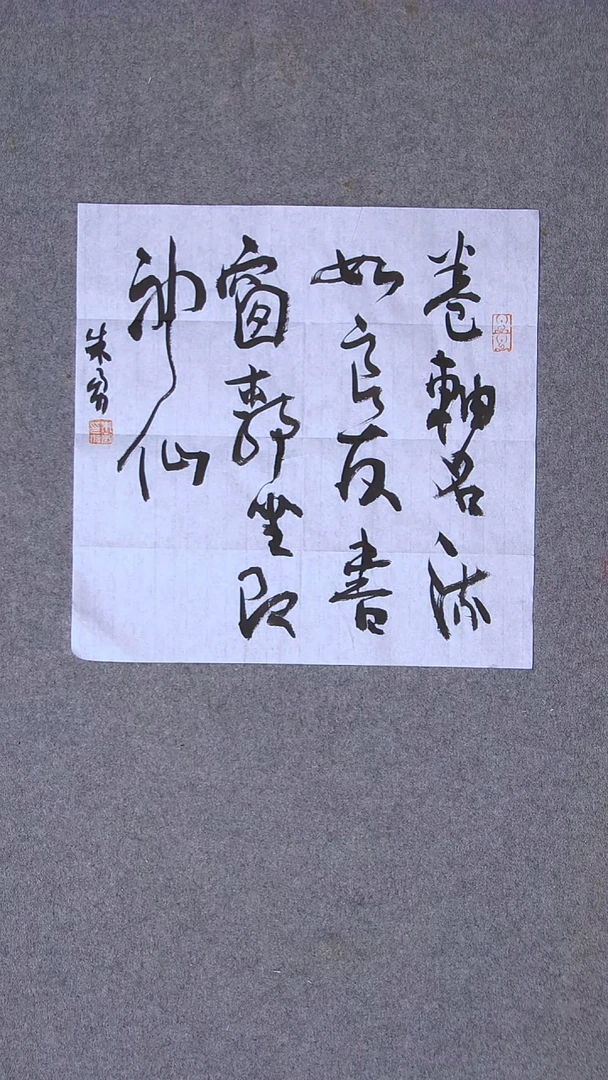 卷軸名流
如良友書
窗静坐即
神仙
朱